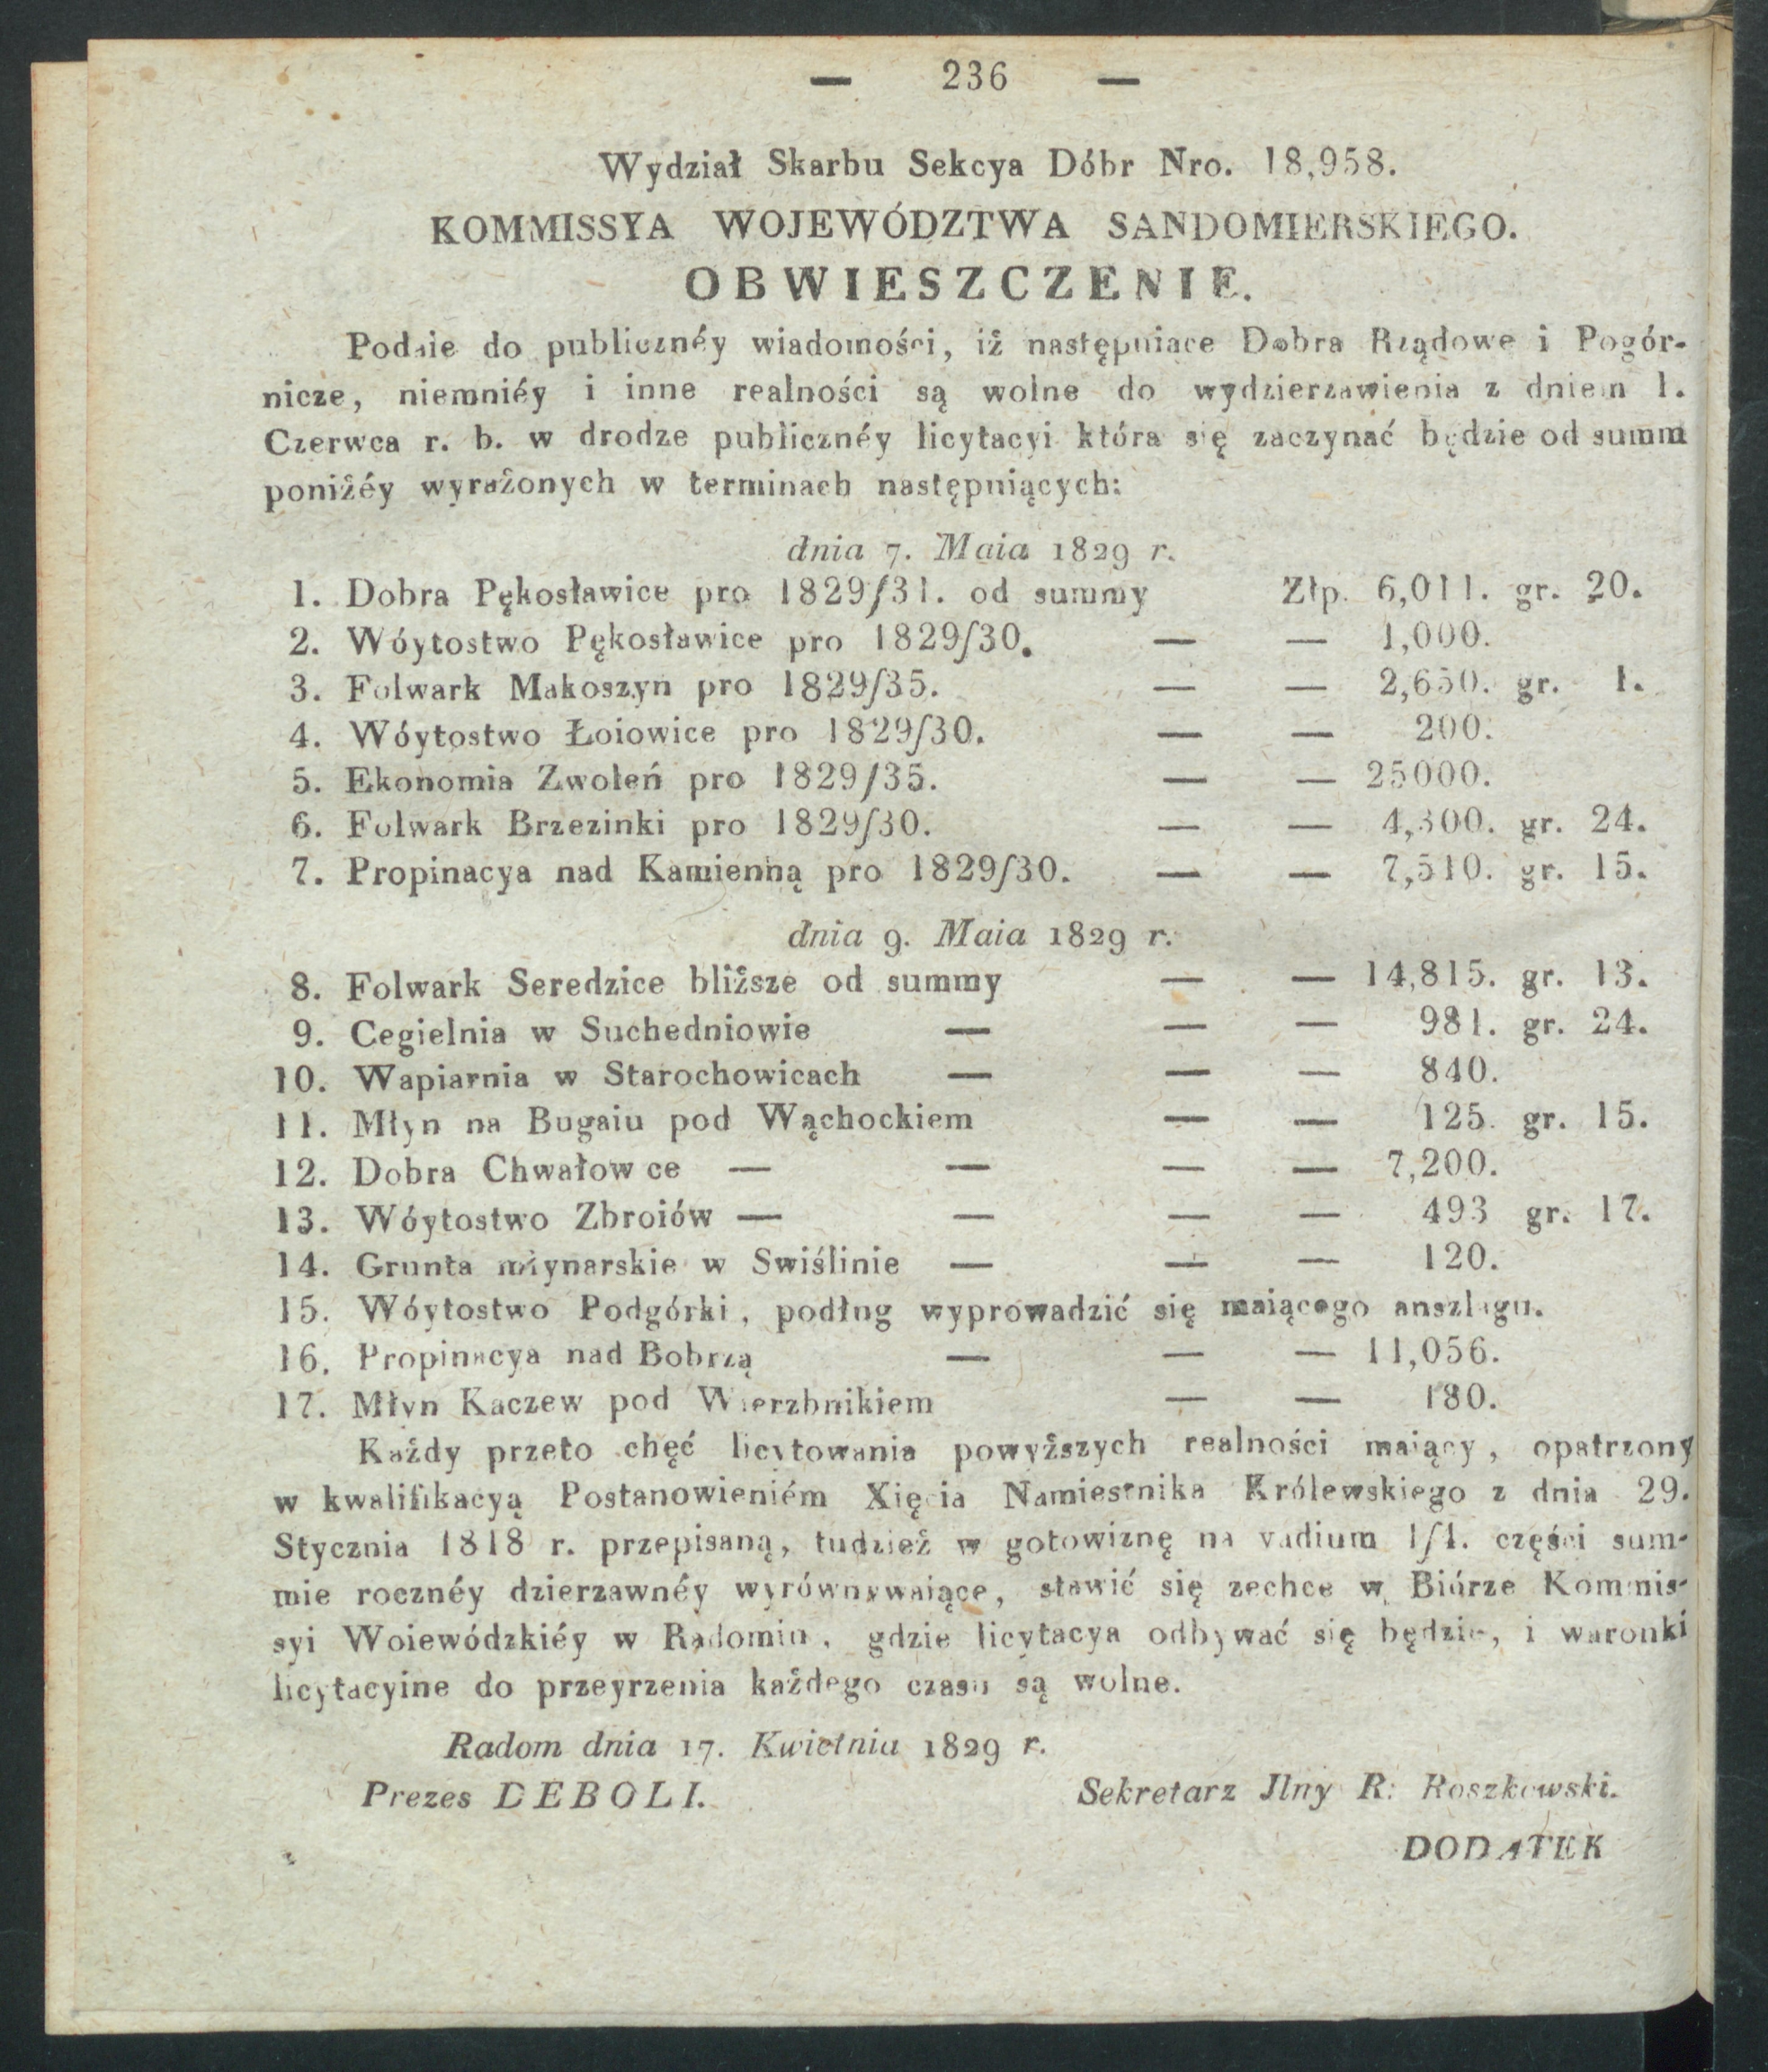 — 236 —
Wydział Skarbu Sekcya Dóbr Nro. 18,958.
KOMMISSYA WOJEWÓDZTWA SANDOMIERSKIEGO.
OBWIESZCZENIE.
Podaie do publicznéy wiadomości, iż następuiące Dobra Rządowe i Pogór-
nicze, niemniéy i inne realności są wolne do wydzierzawienia z dniem 1.
Czerwca r. b. w drodze publicznéy licytacyi która się zaczynać będzie od summ
poniżéy wyrażonych w terminach następuiących:
dnia 7. Maia 1829 r.
1. Dobra Pękosławice pro 1829/31. od summy Złp. 6,011. gr. 20.
2. Wóytostwo Pękosławice pro 1829/30. — — 1,000.
3. Folwark Makoszyn pro 1829/35. — — 2,650. gr. 1.
4. Wóytostwo Łoiowice pro 1829/30. — — 200.
5. Ekonomia Zwoleń pro 1829/35. — — 25000.
6. Folwark Brzezinki pro 1829/30. — — 4,300. gr. 24.
7. Propinacya nad Kamienną pro 1829/30. — — 7,510. gr. 15.
dnia 9. Maia 1829 r.
8. Folwark Seredzice bliższe od summy — — 14,815. gr. 13.
9. Cegielnia w Suchedniowie — — — 981. gr. 24.
10. Wapiarnia w Starochowicach — — — 840.
11. Młyn na Bugaiu pod Wąchockiem — — 125. gr. 15.
12. Dobra Chwałow ce — — — — 7,200.
13. Wóytostwo Zbroiów — — — — 493 gr. 17.
14. Grunta młynarskie w Swiślinie — — — 120.
15. Wóytostwo Podgórki, podług wyprowadzić się maiącego anszlagu.
16. Propinacya nad Bobrzą — — — 11,056.
17. Młyn Kaczew pod Wierzbnikiem — — 180.
Każdy przeto chęć licytowania powyższych realności maiący, opatrzony
w kwalifikacyą Postanowieniém Xięcia Namiestnika Królewskiego z dnia 29.
Stycznia 1818 r. przepisaną, tudzież w gotowiznę na vadium 1/4. części sum-
mie rocznéy dzierzawnéy wyrównywaiące, stawić się zechce w Biórze Kommis-
syi Woiewódzkiéy w Radomiu, gdzie licytacya odbywać się będzie, i waronki
licytacyine do przeyrzenia każdego czasu są wolne.
Radom dnia 17. Kwietnia 1829 r.
Prezes DEBOLI. Sekretarz Jlny R: Roszkowski.
DODATEK